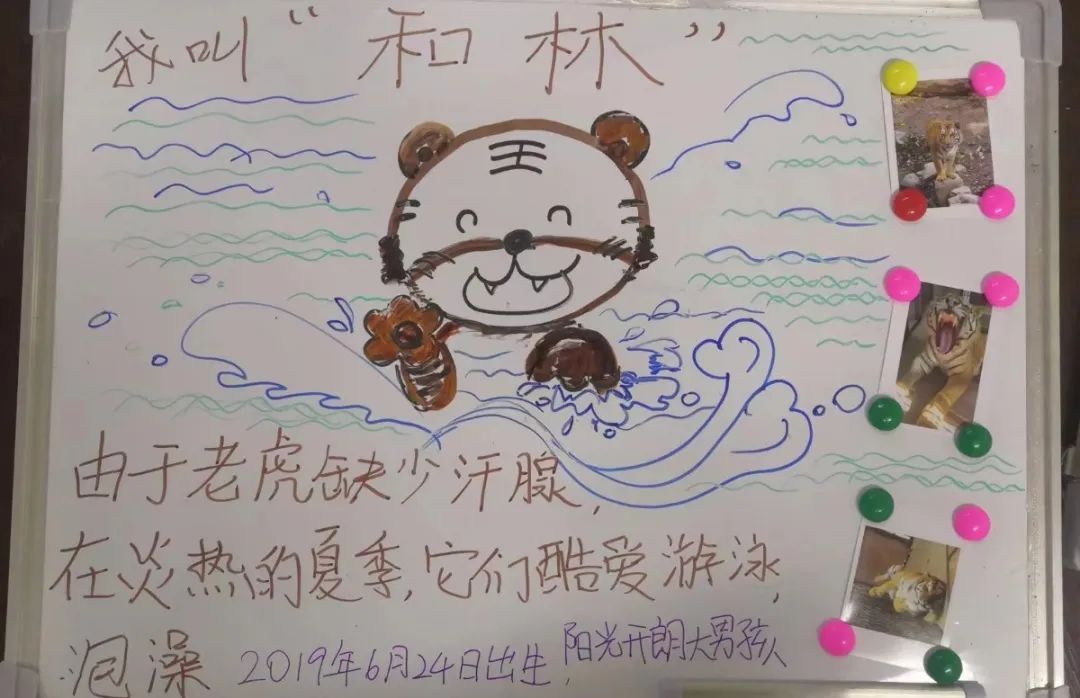 我叫“和林”
王
由于老虎缺少汗腺,
在炎热的夏季,它们酷爱游泳,
泡澡 2019年6月24日出生, 阳光开朗大男孩